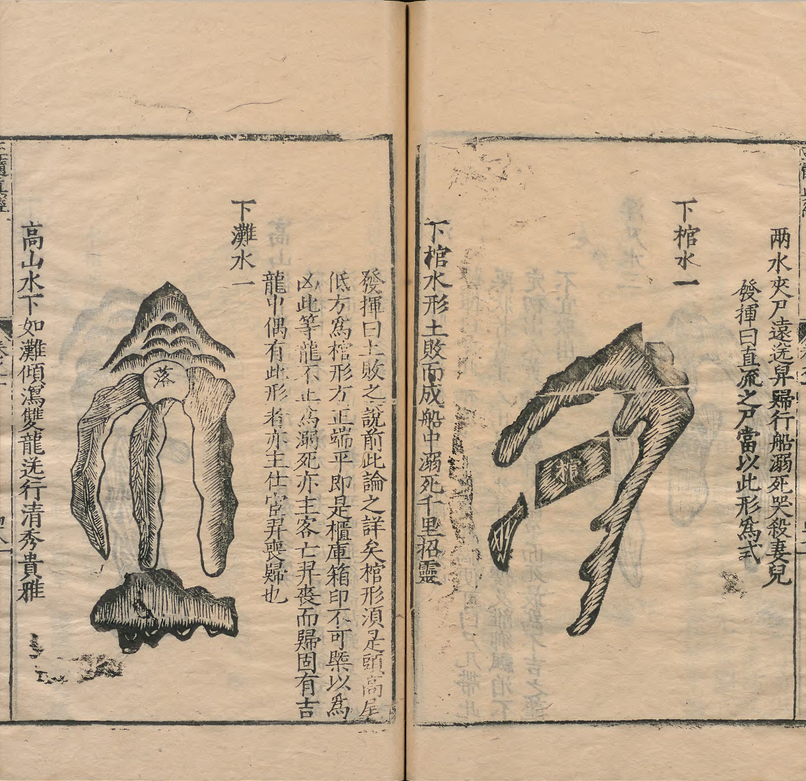 兩水夾尸遠迯舁歸行船溺死哭殺妻兒
發揮曰直流之尸當以此形為式
下棺水一
棺
下棺水形土敗而成船中溺死千里招靈
發揮曰土敗之說前此論之詳矣棺形湏是頭高尾
低方為棺形方正端平即是櫃庫箱印不可槩以為
凶此等龍不止為溺死亦主客亡舁喪而歸固有吉
龍中偶有此形者亦主仕宦舁喪歸也
下灘水一
蕩
高山水下如灘傾瀉雙龍迯行清秀貴雅